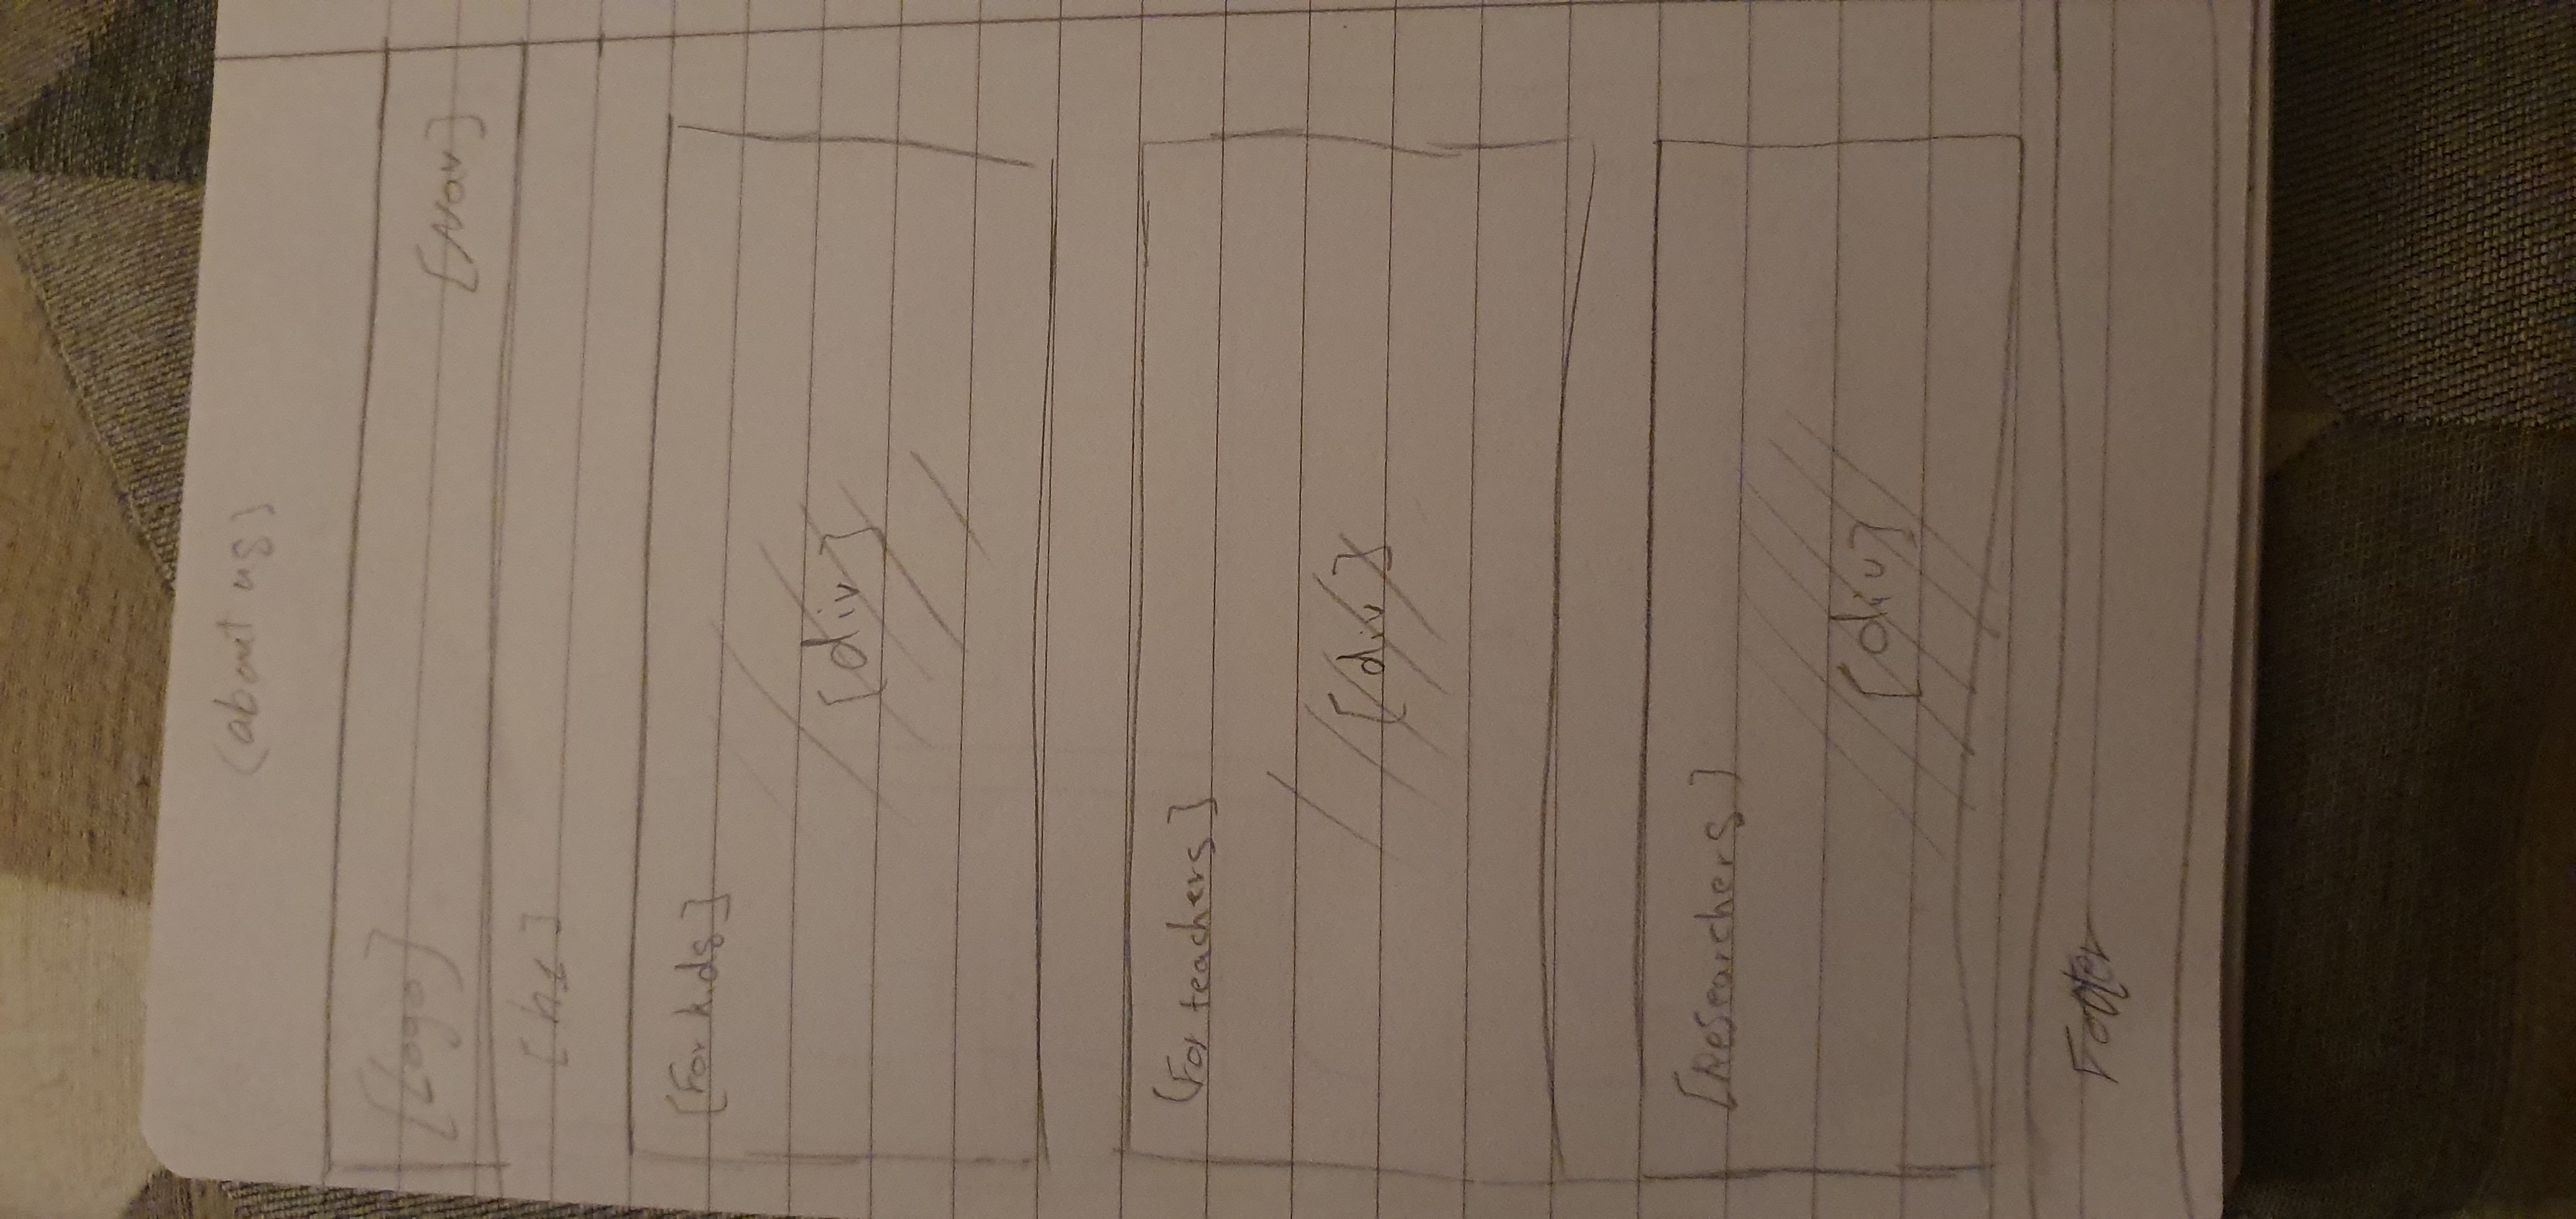 (about us)
[Logo] [Nav]
[h1]
[For kids]
[div]
(For teachers]
[div]
[Researchers]
[div]
Footer